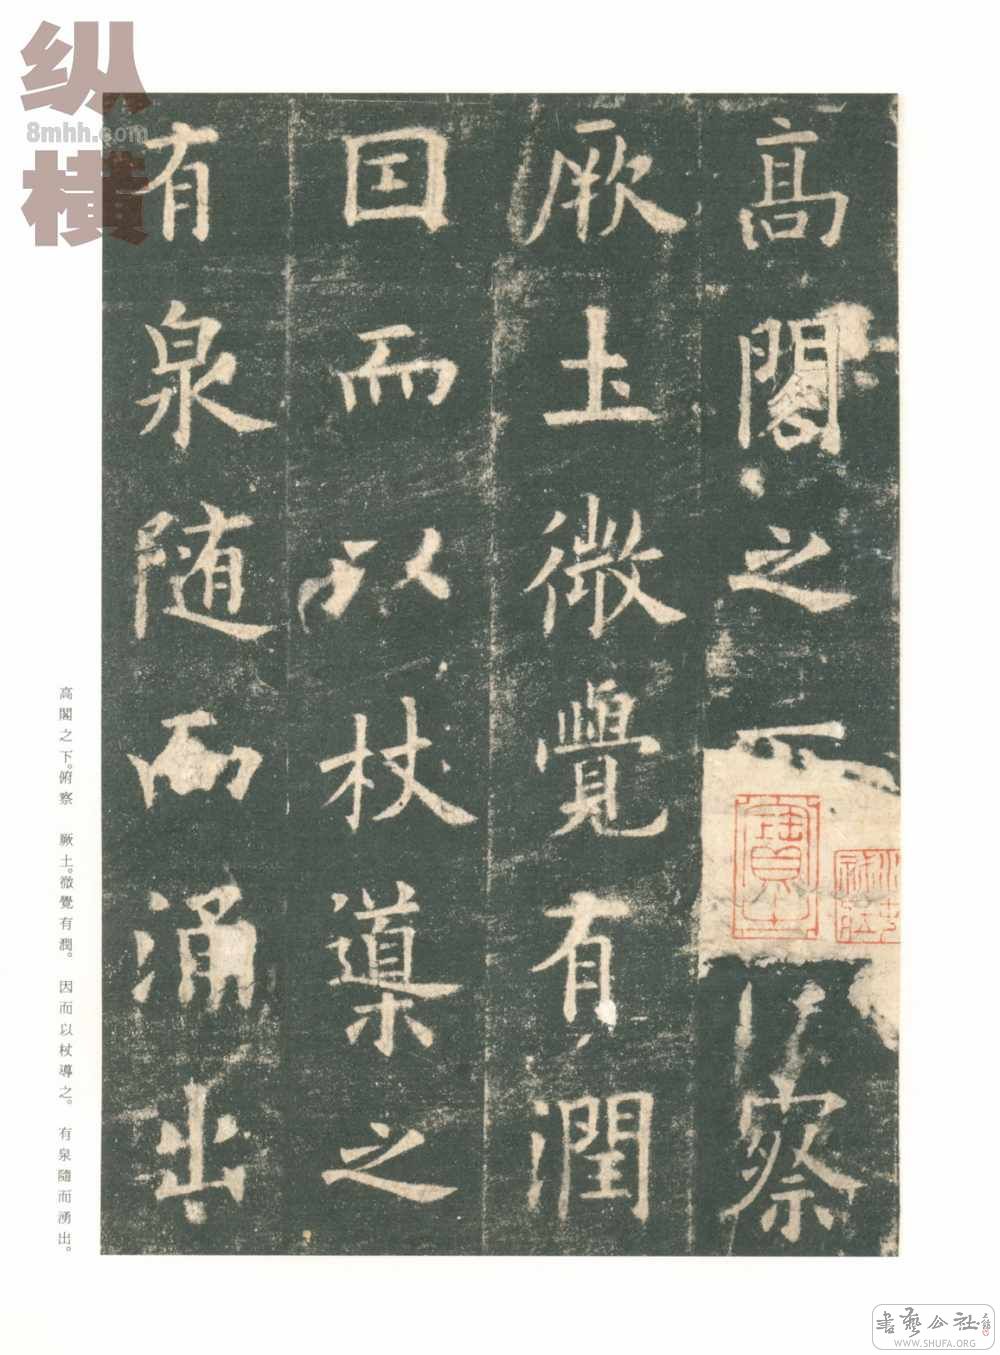 纵
8mhh.com
横
高閣之下　察
厥土微覺有潤
因而以杖導之
有泉随而涌出
高閣之下。俯察　厥土。微覺有潤。　因而以杖導之。　有泉隨而湧出。
書藝公社
WWW.SHUFA.ORG